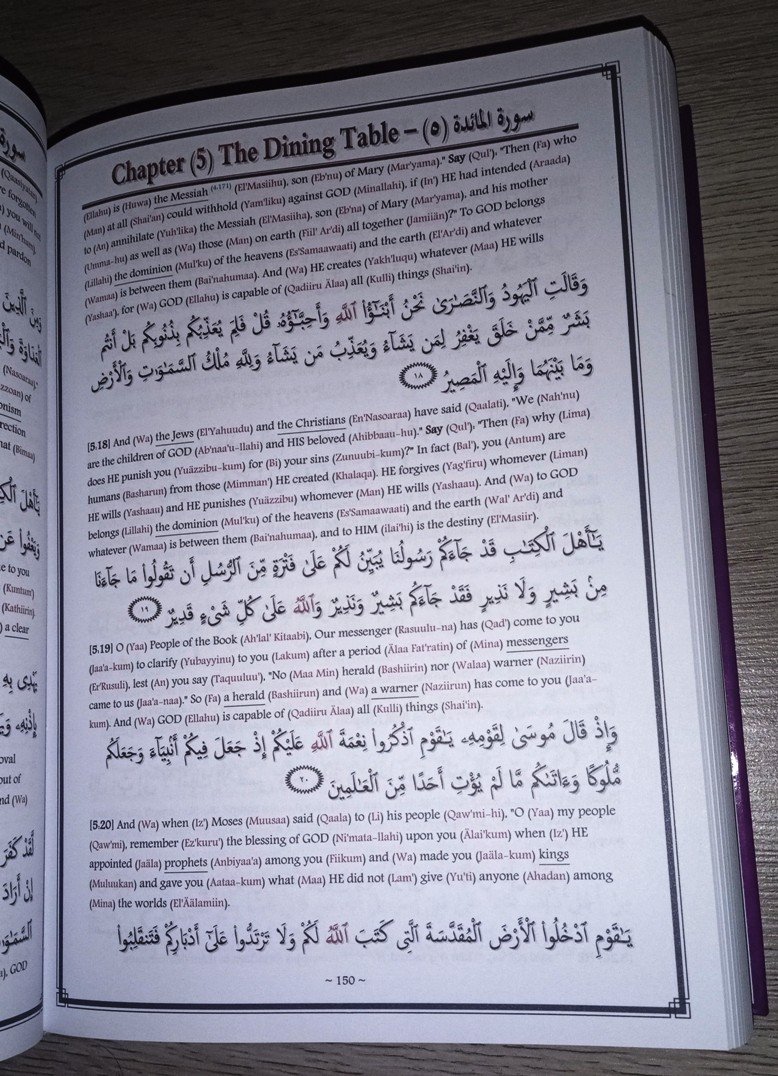 سورة
(Qaasiyatan)
forgotten
) you will
(Min'hum)
d pardon
(Nasoaraa)
zzoan) of
onism
rection
hat (Bimaa)
e to you
(Kuntum)
(Kathiirin)
) a clear
oval
out of
nd (Wa)
), GOD
Chapter (5) The Dining Table – (٥) سورة المائدة
(Ellahu) is (Huwa) the Messiah (4:171) (El'Masiihu), son (Eb'nu) of Mary (Mar'yama)." Say (Qul'), "Then (Fa) who
(Man) at all (Shai'an) could withhold (Yam'liku) against GOD (Minallahi), if (In') HE had intended (Araada)
to (An) annihilate (Yuh'lika) the Messiah (El'Masiiha), son (Eb'na) of Mary (Mar'yama), and his mother
(Umma-hu) as well as (Wa) those (Man) on earth (Fiil' Ar'di) all together (Jamiiän)?" To GOD belongs
(Lillahi) the dominion (Mul'ku) of the heavens (Es'Samaawaati) and the earth (El'Ar'di) and whatever
(Wamaa) is between them (Bai'nahumaa). And (Wa) HE creates (Yakh'luqu) whatever (Maa) HE wills
(Yashaa), for (Wa) GOD (Ellahu) is capable of (Qadiiru Älaa) all (Kulli) things (Shai'in).
وَقَالَتِ الْيَهُودُ وَالنَّصَارَىٰ نَحْنُ أَبْنَاءُ اللَّهِ وَأَحِبَّاؤُهُ قُلْ فَلِمَ يُعَذِّبُكُم بِذُنُوبِكُم بَلْ أَنتُم
بَشَرٌ مِّمَّنْ خَلَقَ يَغْفِرُ لِمَن يَشَاءُ وَيُعَذِّبُ مَن يَشَاءُ وَلِلَّهِ مُلْكُ السَّمَاوَاتِ وَالْأَرْضِ
وَمَا بَيْنَهُمَا وَإِلَيْهِ الْمَصِيرُ ١٨
[5.18] And (Wa) the Jews (El'Yahuudu) and the Christians (En'Nasoaraa) have said (Qaalati), "We (Nah'nu)
are the children of GOD (Ab'naa'u-llahi) and HIS beloved (Ahibbaau-hu)." Say (Qul'), "Then (Fa) why (Lima)
does HE punish you (Yuäzzibu-kum) for (Bi) your sins (Zunuubi-kum)?" In fact (Bal'), you (Antum) are
humans (Basharun) from those (Mimman') HE created (Khalaqa). HE forgives (Yag'firu) whomever (Liman)
HE wills (Yashaau) and HE punishes (Yuäzzibu) whomever (Man) HE wills (Yashaau). And (Wa) to GOD
belongs (Lillahi) the dominion (Mul'ku) of the heavens (Es'Samaawaati) and the earth (Wal' Ar'di) and
whatever (Wamaa) is between them (Bai'nahumaa), and to HIM (ilai'hi) is the destiny (El'Masiir).
يَا أَهْلَ الْكِتَابِ قَدْ جَاءَكُمْ رَسُولُنَا يُبَيِّنُ لَكُمْ عَلَىٰ فَتْرَةٍ مِّنَ الرُّسُلِ أَن تَقُولُوا مَا جَاءَنَا
مِن بَشِيرٍ وَلَا نَذِيرٍ فَقَدْ جَاءَكُم بَشِيرٌ وَنَذِيرٌ وَاللَّهُ عَلَىٰ كُلِّ شَيْءٍ قَدِيرٌ ١٩
[5.19] O (Yaa) People of the Book (Ah'lal' Kitaabi), Our messenger (Rasuulu-na) has (Qad') come to you
(Jaa'a-kum) to clarify (Yubayyinu) to you (Lakum) after a period (Älaa Fat'ratin) of (Mina) messengers
(Er'Rusuli), lest (An) you say (Taquuluu'), "No (Maa Min) herald (Bashiirin) nor (Walaa) warner (Naziirin)
came to us (Jaa'a-naa)." So (Fa) a herald (Bashiirun) and (Wa) a warner (Naziirun) has come to you (Jaa'a-
kum). And (Wa) GOD (Ellahu) is capable of (Qadiiru Älaa) all (Kulli) things (Shai'in).
وَإِذْ قَالَ مُوسَىٰ لِقَوْمِهِ يَا قَوْمِ اذْكُرُوا نِعْمَةَ اللَّهِ عَلَيْكُمْ إِذْ جَعَلَ فِيكُمْ أَنبِيَاءَ وَجَعَلَكُم
مُّلُوكًا وَءَاتَاكُم مَّا لَمْ يُؤْتِ أَحَدًا مِّنَ الْعَالَمِينَ ٢٠
[5.20] And (Wa) when (Iz') Moses (Muusaa) said (Qaala) to (Li) his people (Qaw'mi-hi), "O (Yaa) my people
(Qaw'mi), remember (Ez'kuru') the blessing of GOD (Ni'mata-llahi) upon you (Älai'kum) when (Iz') HE
appointed (Jaäla) prophets (Anbiyaa'a) among you (Fiikum) and (Wa) made you (Jaäla-kum) kings
(Muluukan) and gave you (Aataa-kum) what (Maa) HE did not (Lam') give (Yu'ti) anyone (Ahadan) among
(Mina) the worlds (El'Äälamiin).
يَا قَوْمِ ادْخُلُوا الْأَرْضَ الْمُقَدَّسَةَ الَّتِي كَتَبَ اللَّهُ لَكُمْ وَلَا تَرْتَدُّوا عَلَىٰ أَدْبَارِكُمْ فَتَنقَلِبُوا
~ 150 ~